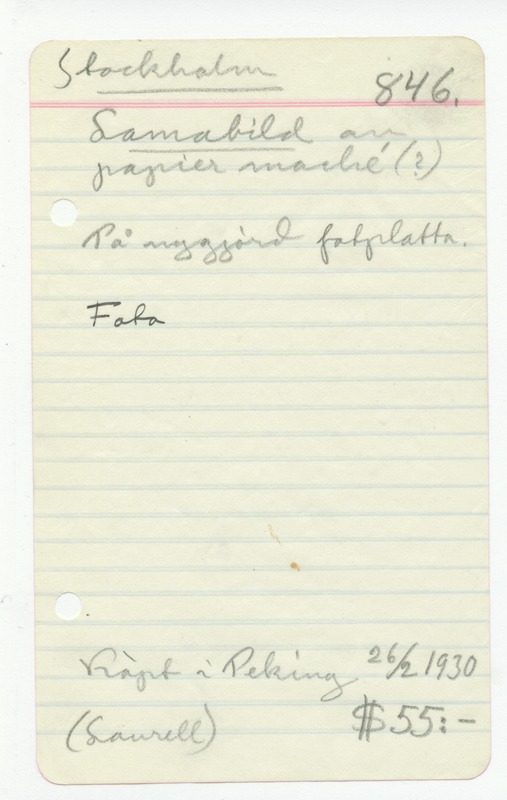 Stockholm
846.
Lamabild av
papier maché (?)
På nygjord fotplatta.
Foto
Köpt i Peking 26/2 1930
(Laurell) $55:-